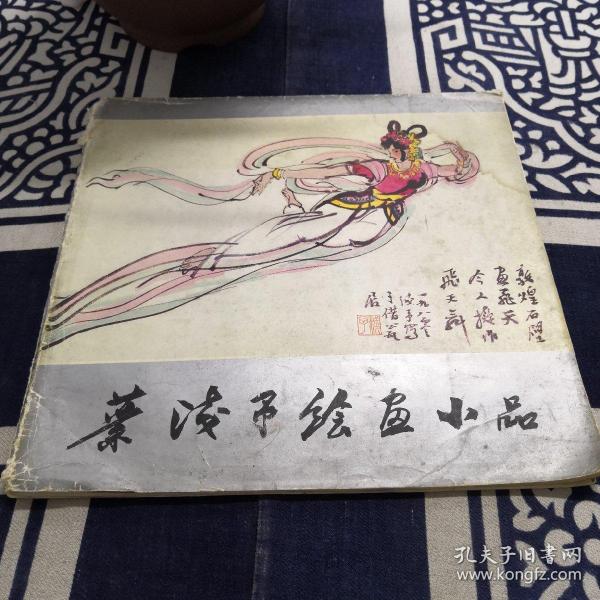 敦煌石窟
画飞天
今人換作
飞天舞
一九八〇年
浅予写
于借山
居
葉浅予绘画小品
孔夫子旧书网
www.kongfz.com